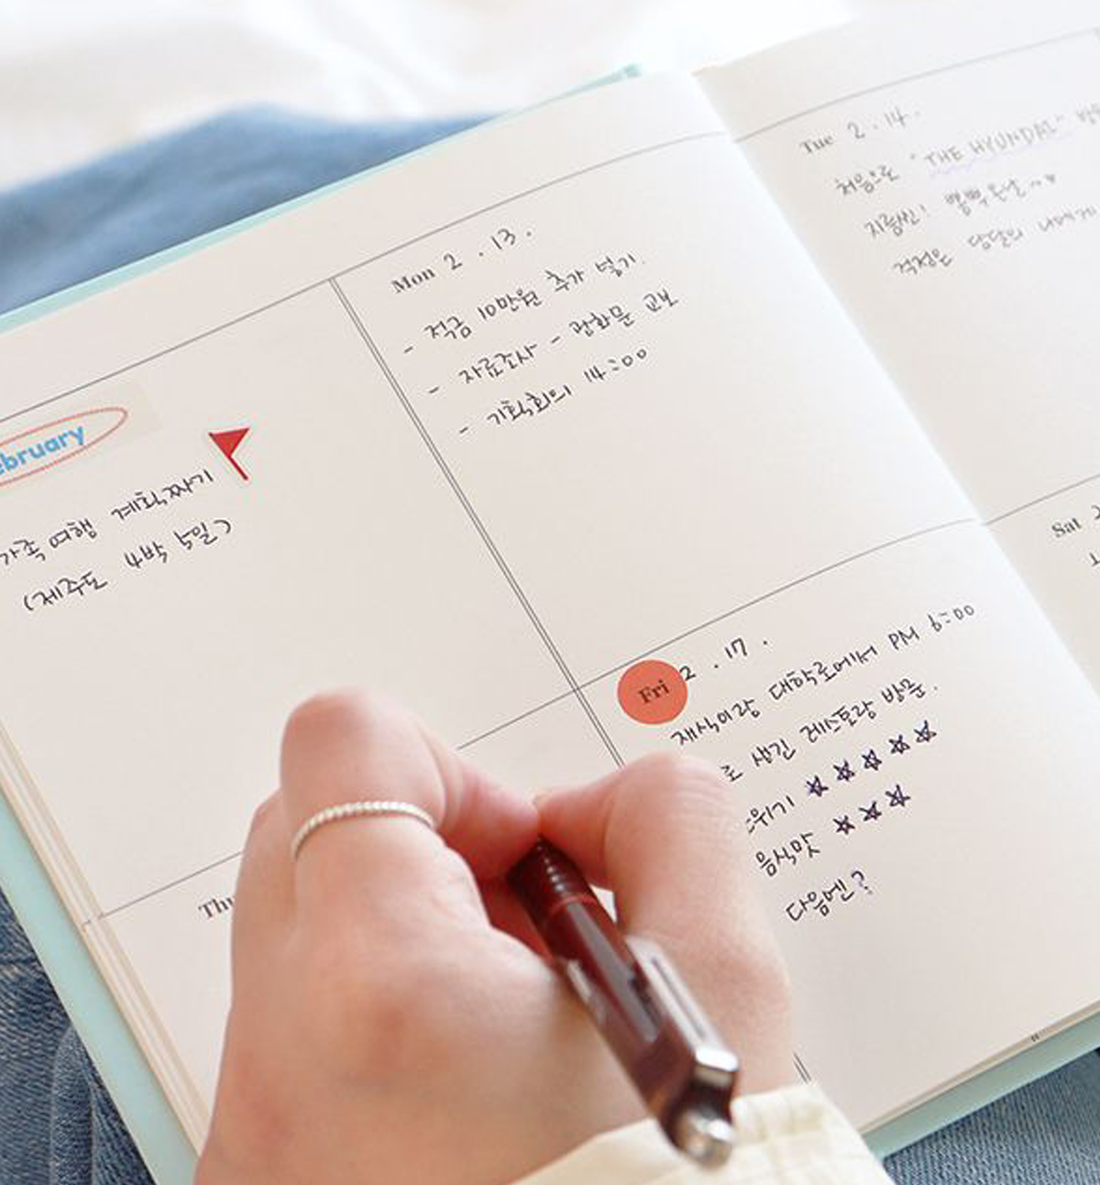 ebruary
가족 여행 계획짜기
(제주도 4박 5일)
Mon 2 . 13 .
- 적금 10만원 추가 넣기.
- 자료조사 - 광화문 교보
- 기획회의 14:00
Tue 2 . 14 .
처음으로 "THE HYUNDAI"
지름신!
걱정은 담달의 나에게
Thu
Fri 2 . 17 .
재식이랑 대학로에서 PM 6:00
로 생긴 레스토랑 방문.
위기 ★★★★★
음식맛 ★★★
다음엔?
Sat 2